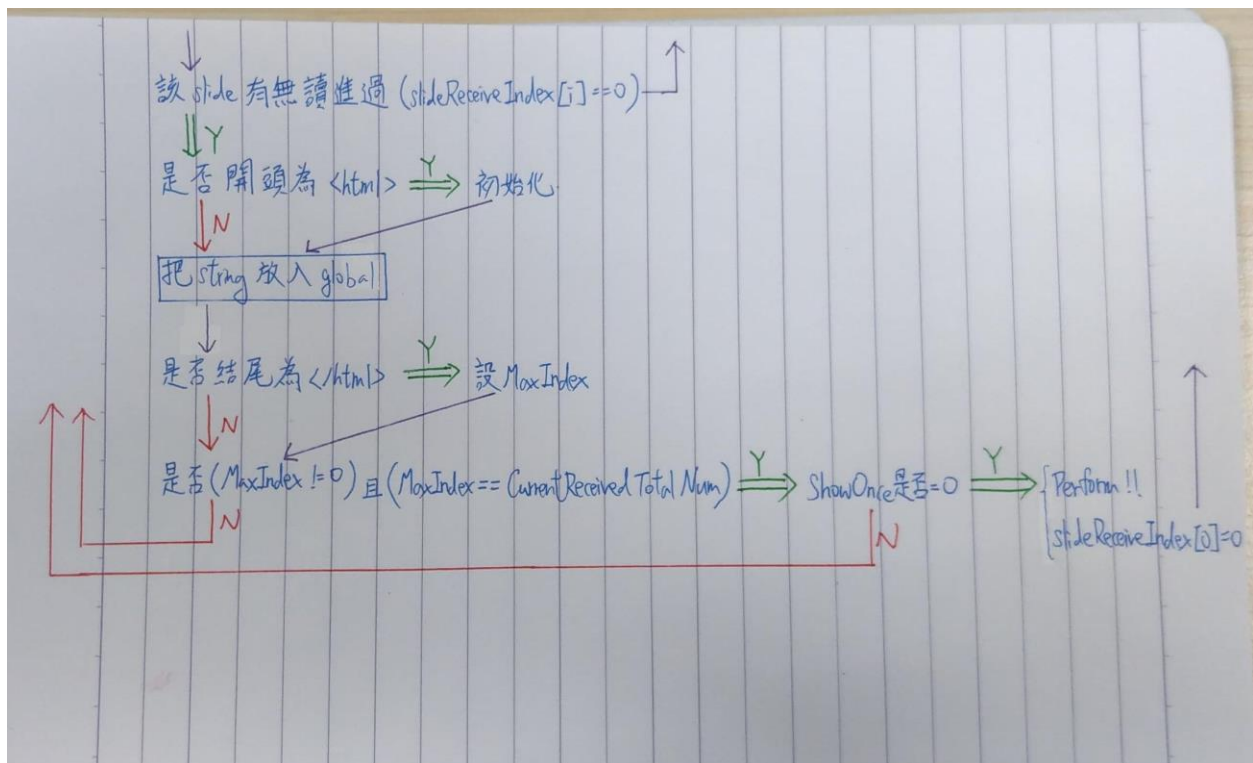 該 slide 有無讀進過 (slideReceiveIndex[i]==0)
Y
是否開頭為 <html> Y 初始化
N
把 string 放入 global
是否結尾為 </html> Y 設 MaxIndex
N
是否(MaxIndex != 0) 且 (MaxIndex == CurrentReceived Total Num) Y ShowOnce是否=0 Y Perform !!
N N slideReceiveIndex[0]=0